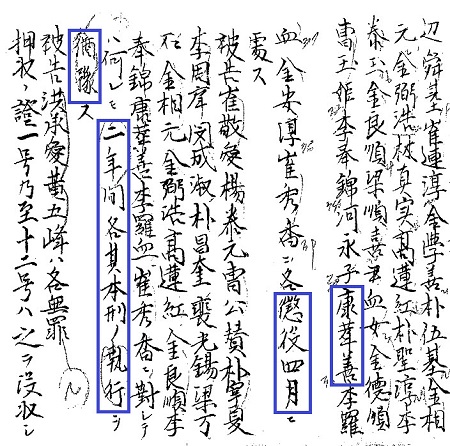 舜基崔連淳金學善朴伍基金相
元金弼浩林真実高蓮紅朴聖淳李
泰玉金良順梁順喜 血女金德順
曺玉姫李奉錦河永子康華善李羅
血金安淳崔秀香ニ各懲役四月ニ
處ス
被告崔敬愛楊泰元曺公賛朴寧夏
李周庠閔成淑朴昌奎裴光錫梁万
石金相元金弼浩高蓮紅金良順李
奉錦康華善李羅血崔秀香ニ對シテ
ハ何レモ二年間各其本刑ノ執行ヲ
猶豫ス
被告洪承愛黄五峰ハ各無罪
押収ノ證一号乃至十二号ハ之ヲ没収シ